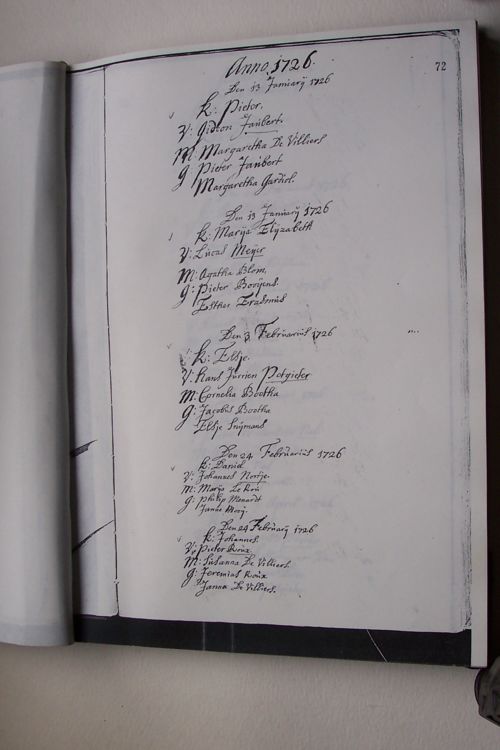 Anno 1726.
72
Den 13 Januarij 1726
K: Pieter.
V: Gideon Jaubert.
M: Margaretha De Villiers
G: Pieter Jaubert
Margaretha Gardiol.
Den 13 Januarij 1726
K: Marija Elyzabeth
V: Lucas Meyer
M: Agatha Blom.
G: Pieter Booyens.
Esther Erasmus
Den 3 Februarius 1726
K: Elsje.
V: Hans Jurrien Potgieter
M: Cornelia Bootha
G: Jacobus Bootha
Elsje Snijmans
Den 24 Februarius 1726
K: Daniel
V: Johannes Nortje.
M: Marija Le Roú
G: Philip
Den 24 Februarij 1726
K: Johannes.
V: Pieter Roúx.
M: Susanna De Villiers.
G: Jeremias Roúx
Janna De Villiers.